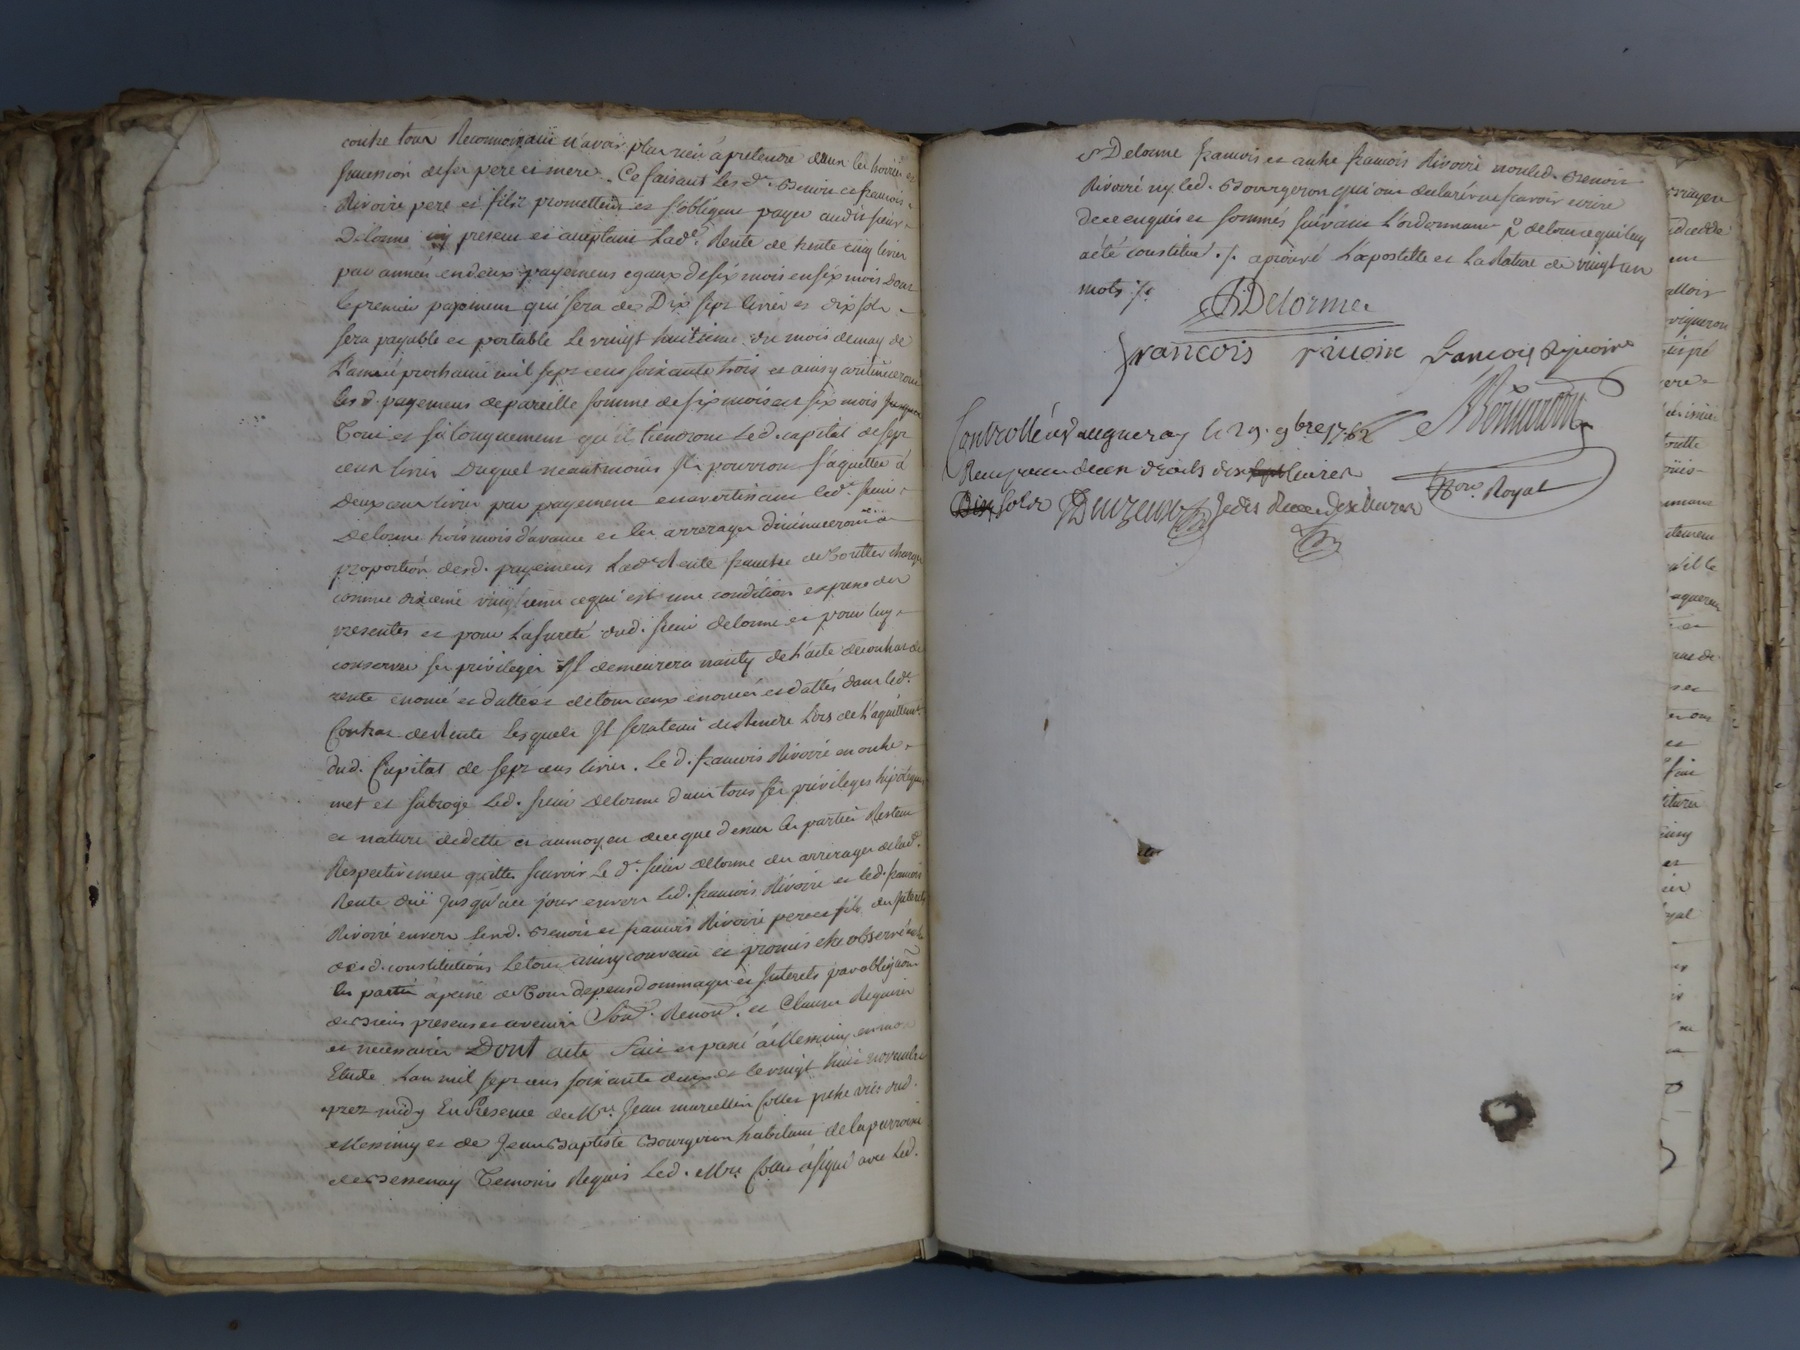 contre tous Reconnoissant n'avoir plus rien à pretendre dans les hoiries et
sucession de ses pere et mere. Ce faisant Lesd.ts Benoit et françois
Rivoire pere et fils promettent et s'obligent payer audit sieur
Delorme présent et aceptant Lad.e Rente de trente cinq livres
par année en deux payemens egaux de six mois en six mois dont
le premier payement qui sera de Dix sept livres et dix sols
sera payable et portable Le vingt huitieme du mois de may de
L'année prochaine mil sept cens soixante trois et ainsy continüeront
les d. payemens de pareille somme de six mois en six mois
Tant et si longuement qu'il tiendront Led. capital de sept
cens livres Duquel neantmoins Ils pourront s'aquitter à
deux cens livres par payement en avertissant led.t sieur
Delorme trois mois d'avance et les arrerages diminueront à
proportion desd. payemens Lad.e Rente franche de Touttes charges
comme dixieme vingtieme ce qui est une condition expresse des
presentes et pour La sureté dud. sieur delorme et pour luy
conserver ses privileges Il demeurera nanty de L'acte de contrat de
rente enoncé et datté et de tous ceux enoncés et dattés dans led.t
Contrat de Rente Lesquels Il sera tenu de Rendre Lors de L'aquittement
dud. Capital de sept cens livres. Le d. françois Rivoire en outre
met et subroge Led. sieur Delorme dans tous ses privileges hipoteques
et nature de dette et au moyen de ce que dessus les parties Restent
Respectivement quitte sçavoir Le d.t sieur delorme des arrerages de lad.e
Rente düe jusqu'à ce jour envers led. françois Rivoire et led. françois
Rivoire envers lesd. Benoit et françois Rivoire pere et fils des Interets
desd. constitutions Le tout ainsy convenu et promis etre observé
les parties à peine de Tous depens dommages et Interets par obligation
de Biens presens et avenir et Clauses Requises
et necessaires Dont acte Fait et passé à Messimy en mon
Etude L'an mil sept cens soixante deux et le vingt huit novembre
apres midy En Presence de M.re Jean marcellin Collet pretre vic.e dud.
Messimy et de Jean Baptiste Bourgeron habitant de la parroisse
de Bessenay Temoins Requis Led. M.re Collet a signé avec Led.
s.r Delorme françois et autre françois Rivoire non led. Benoit
Rivoire ny led. Bourgeron qui ont declaré ne sçavoir ecrire
de ce enquis et sommés suivant L'ordonnance de tout ce qui luy
a été constitué ./. aprouvé L'apostille et La Rature de vingt un
mots ./.
Delorme
francois rivoire francois Rivoire
Controllé à Vaugneray le 29. 9bre 1762
Reçu pour deux droits dix livres
sols
Not.re Royal